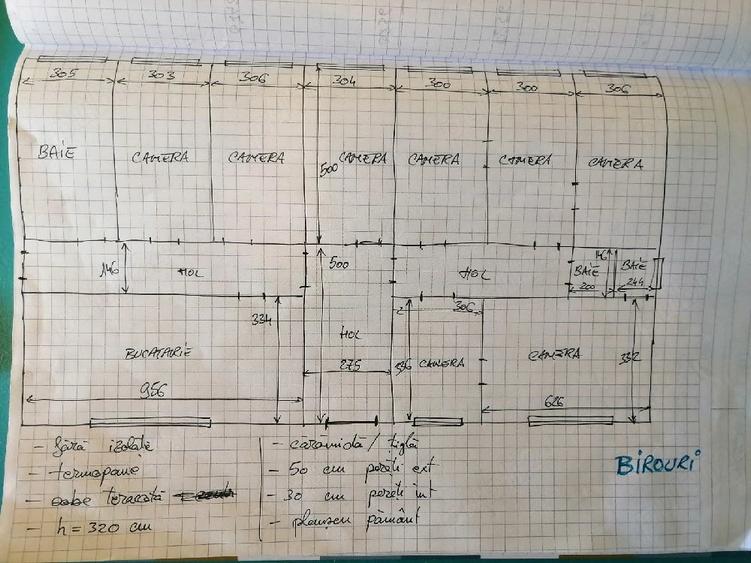 305 303 306 304 300 300 306
BAIE CAMERA CAMERA CAMERA CAMERA CAMERA CAMERA
500
146 HOL 500 HOL BAIE 146 BAIE
200 244
334 306
HOL
BUCATARIE 275 CAMERA CAMERA 332
956 626
- fără izolație
- termopane
- sobe teracotă
- h = 320 cm
- caramidă / țiglă
- 50 cm pereți ext
- 30 cm pereți int
- planșeu pământ
BIROURI